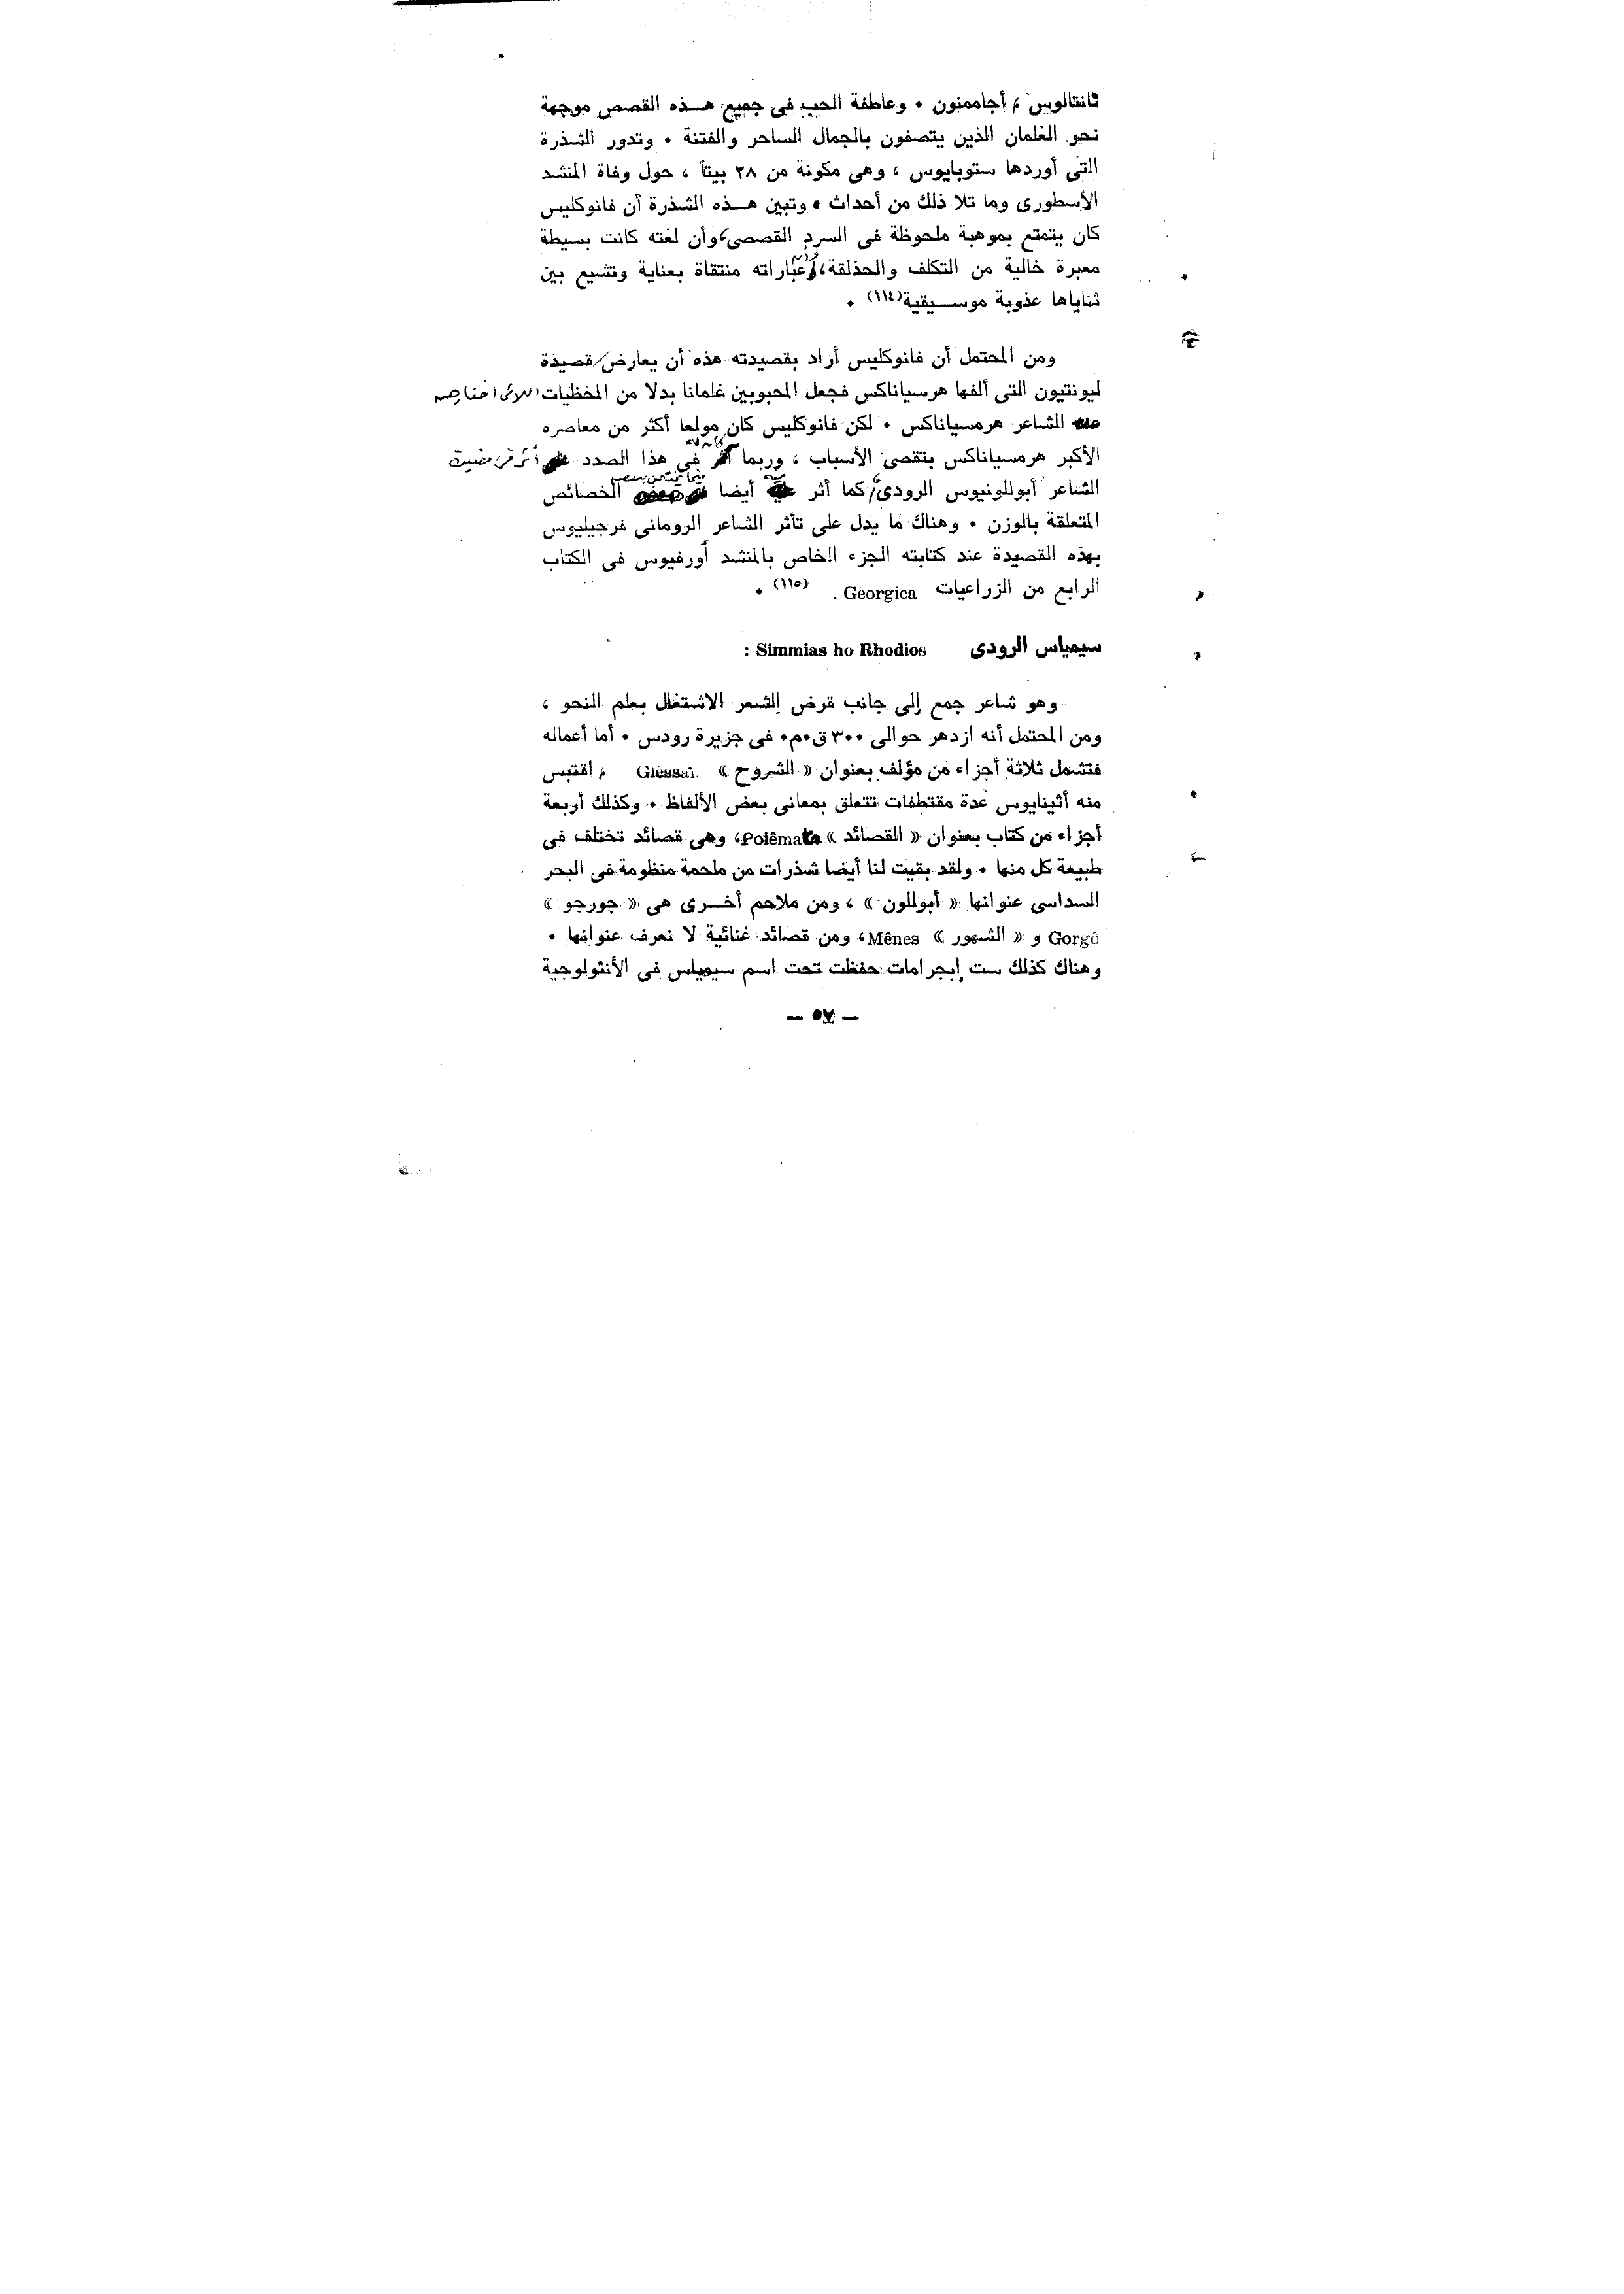 تانتالوس ، أجاممنون ٠ وعاطفة الحب فى جميع هــذه القصص موجهة
نحو الغلمان الذين يتصفون بالجمال الساحر والفتنة ٠ وتدور الشذرة
التى أوردها ستوبايوس ، وهى مكونة من ٢٨ بيتاً ، حول وفاة المنشد
الأسطورى وما تلا ذلك من أحداث ٠ وتبين هــذه الشذرة أن فانوكليس
كان يتمتع بموهبة ملحوظة فى السرد القصصى، وأن لغته كانت بسيطة
معبرة خالية من التكلف والحذلقة، وأن عباراته منتقاة بعناية وتشيع بين
ثناياها عذوبة موســيقية(١١٤) ٠
ومن المحتمل أن فانوكليس أراد بقصيدته هذه أن يعارض قصيدة
ليونتيون التى ألفها هرسياناكس فجعل المحبوبين غلمانا بدلا من المحظيات اللائى اختارهن
الشاعر هرمسياناكس ٠ لكن فانوكليس كان مولعا أكثر من معاصره
الأكبر هرمسياناكس بتقصى الأسباب ، وربما كان له فى هذا الصدد أثر فى
الشاعر أبوللونيوس الرودى، كما أثر فيه أيضا الخصائص
المتعلقة بالوزن ٠ وهناك ما يدل على تأثر الشاعر الرومانى فرجيليوس
بهذه القصيدة عند كتابته الجزء الخاص بالمنشد أورفيوس فى الكتاب
الرابع من الزراعيات Georgica . (١١٥) ٠
سيمياس الرودى Simmias ho Rhodios :
وهو شاعر جمع إلى جانب قرض الشعر الاشتغال بعلم النحو ،
ومن المحتمل أنه ازدهر حوالى ٣٠٠ ق٠م٠ فى جزيرة رودس ٠ أما أعماله
فتشمل ثلاثة أجزاء من مؤلف بعنوان « الشروح » Glêssai ، اقتبس
منه أثينايوس عدة مقتطفات تتعلق بمعانى بعض الألفاظ ٠ وكذلك أربعة
أجزاء من كتاب بعنوان « القصائد » Poiêmata، وهى قصائد تختلف فى
طبيعة كل منها ٠ ولقد بقيت لنا أيضا شذرات من ملحمة منظومة فى البحر
السداسى عنوانها « أبوللون » ، ومن ملاحم أخــرى هى « جورجو »
Gorgô و « الشهور » Mênes، ومن قصائد غنائية لا نعرف عنوانها ٠
وهناك كذلك ست إبجرامات حفظت تحت اسم سيمياس فى الأنثولوجية
— ٥٧ —